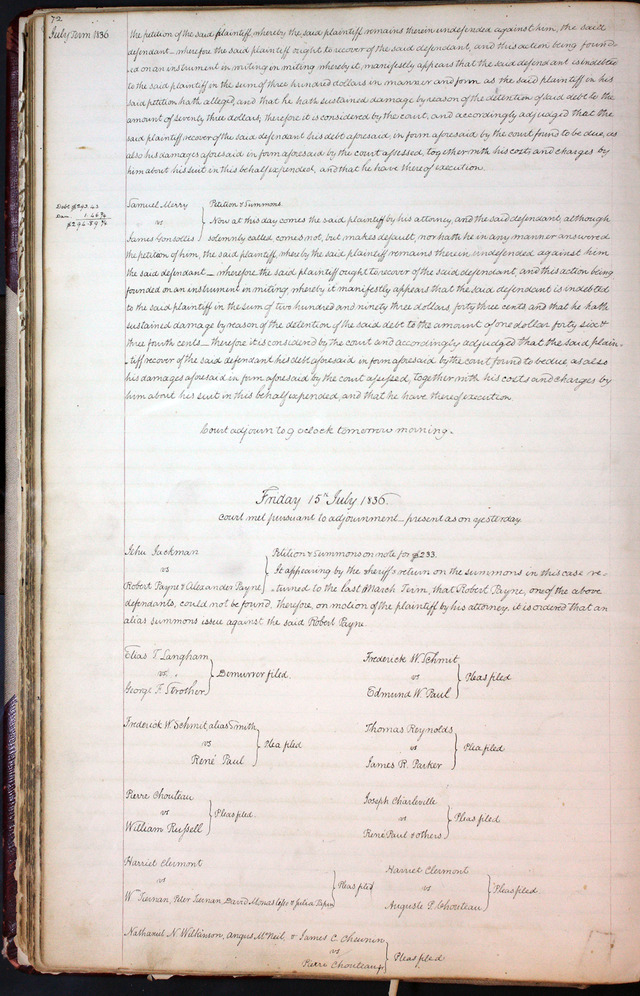 72
July Term 1836
the petition of the said plaintiff whereby the said plaintiff remains therein undefended against him, the said
defendant — wherefore the said plaintiff ought to recover of the said defendant, and this action being found-
ed on an instrument in writing in writing whereby it manifestly appears that the said defendant is indebted
to the said plaintiff in the sum of three hundred dollars in manner and form as the said plaintiff in his
said petition hath alleged, and that he hath sustained damage by reason of the detention of said debt to the
amount of seventy three dollars, therefore it is considered by the court, and accordingly adjudged that the
said plaintiff recover of the said defendant his debt aforesaid, in form aforesaid by the court found to be due, as
also his damages aforesaid in form aforesaid by the court assessed, together with his costs and charges by
him about his suit in this behalf expended, and that he have thereof execution.
Debt $293.43
Dam. 1.46¾
$294.89¾
Samuel Merry
vs
James Gonsolles
Petition & Summons.
Now at this day comes the said plaintiff by his attorney, and the said defendant, although
solemnly called, comes not, but makes default, nor hath he in any manner answered
the petition of him, the said plaintiff, whereby the said plaintiff remains therein undefended against him
the said defendant — wherefore the said plaintiff ought to recover of the said defendant, and this action being
founded on an instrument in writing, whereby it manifestly appears that the said defendant is indebted
to the said plaintiff in the sum of two hundred and ninety three dollars forty three cents and that he hath
sustained damage by reason of the detention of the said debt to the amount of one dollar forty six &
three fourth cents — therefore it is considered by the court and accordingly adjudged that the said plain-
-tiff recover of the said defendant his debt aforesaid in form aforesaid by the court found to be due, as also
his damages aforesaid in form aforesaid by the court assessed, together with his costs and charges by
him about his suit in this behalf expended, and that he have thereof execution.
Court adjourn to 9 oclock tomorrow morning.
Friday 15th July 1836.
Court met pursuant to adjournment — present as on yesterday.
Jehu Jackman
vs
Robert Payne & Alexander Payne
Petition & Summons on note for $233.
It appearing by the sheriff's return on the summons in this case re-
-turned to the last March Term, that Robert Payne, one of the above
defendants, could not be found, therefore, on motion of the plaintiff by his attorney, it is ordered that an
alias summons issue against the said Robert Payne.
Elias T. Langham
vs.
George F. Strother
Demurrer filed.
Frederick W. Schmit
vs
Edmund W. Paul
Pleas filed
Frederick W. Schmit alias Smith
vs
René Paul
Plea filed
Thomas Reynolds
vs
James R. Parker
Plea filed
Pierre Chouteau
vs
William Russell
Pleas filed.
Joseph Charleville
vs
René Paul & others
Pleas filed
Harriet Clermont
vs
W. Tiernan, Peter Tiernan, David Monastesse & Julia Papin
Pleas filed
Harriet Clermont
vs
Auguste P. Chouteau
Pleas filed
Nathaniel N. Wilkinson, Angus McNeil, & James C. Cheunin
vs
Pierre Chouteau
Pleas filed